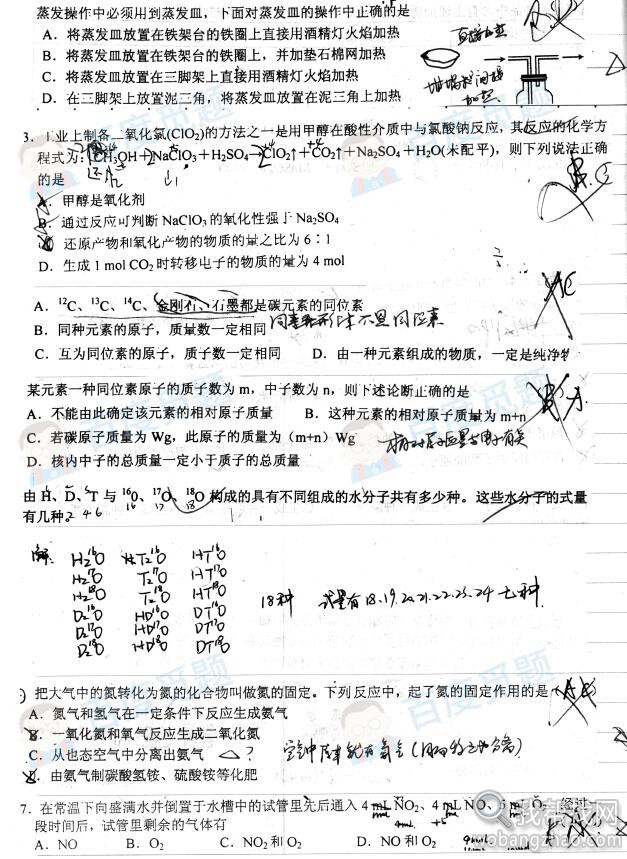 蒸发操作中必须用到蒸发皿,下面对蒸发皿的操作中正确的是
A.将蒸发皿放置在铁架台的铁圈上直接用酒精灯火焰加热
B.将蒸发皿放置在铁架台的铁圈上,并加垫石棉网加热
C.将蒸发皿放置在三脚架上直接用酒精灯火焰加热
D.在三脚架上放置泥三角,将蒸发皿放置在泥三角上加热
直接加热
3.工业上制备二氧化氯(ClO₂)的方法之一是用甲醇在酸性介质中与氯酸钠反应,其反应的化学方
程式为:CH₃OH+NaClO₃+H₂SO₄→ClO₂↑+CO₂↑+Na₂SO₄+H₂O(未配平),则下列说法正确
的是
A.甲醇是氧化剂
B.通过反应可判断 NaClO₃的氧化性强于 Na₂SO₄
C.还原产物和氧化产物的物质的量之比为 6:1
D.生成 1 mol CO₂时转移电子的物质的量为 4 mol
A.¹²C、¹³C、¹⁴C、金刚石、石墨都是碳元素的同位素
B.同种元素的原子,质量数一定相同
C.互为同位素的原子,质子数一定相同 D.由一种元素组成的物质,一定是纯净物
某元素一种同位素原子的质子数为 m,中子数为 n,则下述论断正确的是
A.不能由此确定该元素的相对原子质量 B.这种元素的相对原子质量为 m+n
C.若碳原子质量为 Wg,此原子的质量为(m+n)Wg
D.核内中子的总质量一定小于质子的总质量
由 H、D、T 与 ¹⁶O、¹⁷O、¹⁸O 构成的具有不同组成的水分子共有多少种。这些水分子的式量
有几种。
2 4 6 16 17 18
解:
H₂¹⁶O T₂¹⁶O HT¹⁶O
H₂¹⁷O T₂¹⁷O HT¹⁷O
H₂¹⁸O T₂¹⁸O HT¹⁸O
D₂¹⁶O HD¹⁶O DT¹⁶O
D₂¹⁷O HD¹⁷O DT¹⁷O
D₂¹⁸O HD¹⁸O DT¹⁸O
18种 式量有18、19、20、21、22、23、24 七种
把大气中的氮转化为氮的化合物叫做氮的固定。下列反应中,起了氮的固定作用的是
A.氮气和氢气在一定条件下反应生成氨气
B.一氧化氮和氧气反应生成二氧化氮
C.从液态空气中分离出氨气
D.由氨气制碳酸氢铵、硫酸铵等化肥
7.在常温下向盛满水并倒置于水槽中的试管里先后通入 4 mL NO₂、4 mL NO、5 mL O₂,经过
段时间后,试管里剩余的气体有
A.NO B.O₂ C.NO₂和 O₂ D.NO 和 O₂
百度觅题
我帮找网
wobangzhao.com